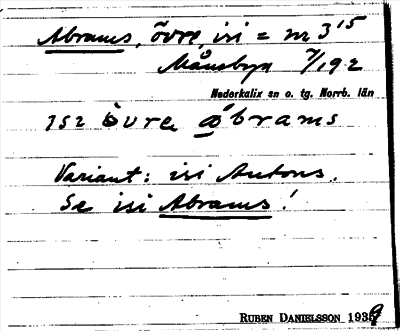 Abrams, övre, isi = nr 3¹⁵
Månsbyn 7/192
Nederkalix sn o. tg. Norrb. län
ɪsɪ òvrɐ ábrams
Variant: isi Antons.
Se isi Abrams!
RUBEN DANIELSSON 1939